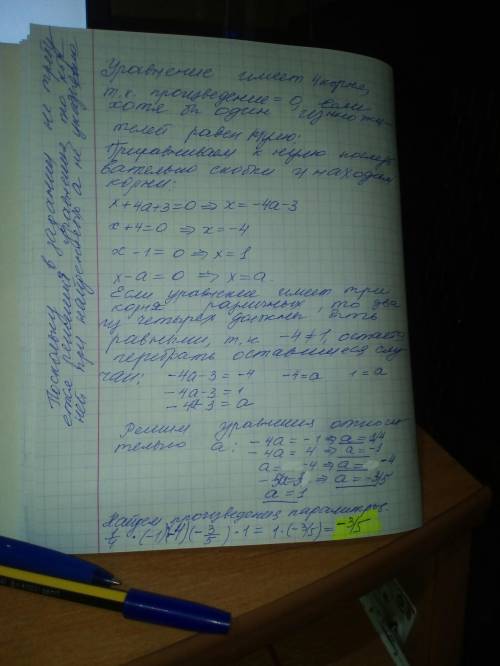 Уравнение имеет 4 корня,
т.к. произведение = 0, если
хотя бы один из множи-
телей равен нулю.
Приравниваем к нулю последо
вательно скобки и находим
корни:
x+4a+3=0 ⇒ x=-4a-3
x+4=0 ⇒ x=-4
x-1=0 ⇒ x=1
x-a=0 ⇒ x=a.
Если уравнение имеет три
корня различных, то два
из четырех должны быть
равными, т.к. -4≠1, остает
перебрать оставшиеся слу
чаи: -4a-3=-4 -4=a 1=a
-4a-3=1
-4a-3=a
Решим уравнения относи
тельно a: -4a=-1 ⇒ a=1/4
-4a=4 ⇒ a=-1
a=-4 ⇒ a=-4
-5a=3 ⇒ a=-3/5
a=1
Найдем произведение параметров:
1/4·(-1)(-4)(-3/5)·1=1·(-3/5)=-3/5
Поскольку в задании не требу
ется решения уравнения, то